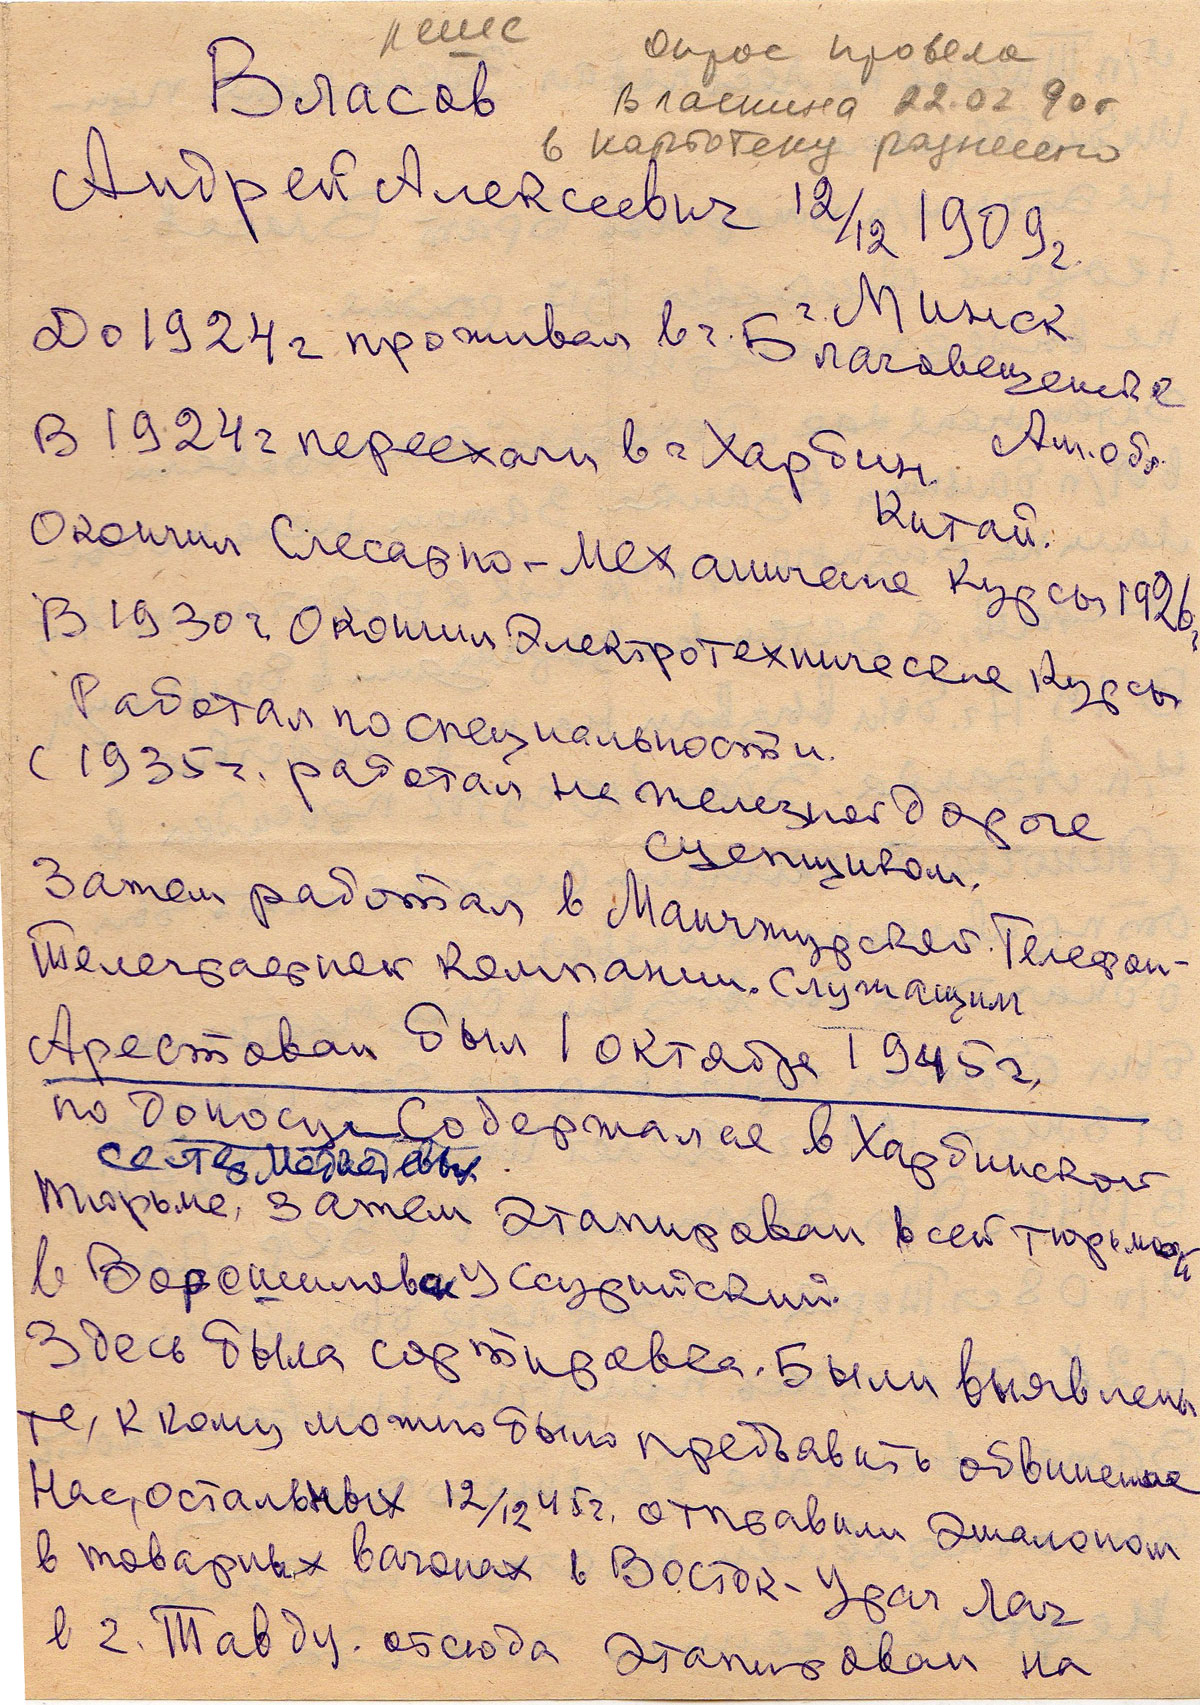 опрос провела
Власкина 22.02 90г
в картотеку разнесено
Власов
Андрей Алексеевич 12/12 1909г.
г. Минск
До 1924г проживал в г. Благовещенске
Ам. обл.
В 1924г переехали в г Харбин.
Китай.
Окончил Слесарно-механические курсы 1926г.
В 1930г. Окончил Электротехнические курсы
Работал по специальности.
С 1935г. работал на железной дороге
сцепщиком.
Затем работал в Манчжурской. Телефон-
Телеграфной компании. Служащим
Арестован был 1 октября 1945г.
по доносу Содержался в Харбинской
тюрьме, затем этапирован всей тюрьмой
в Ворошилов Уссурийский.
Здесь была сортировка. Были выявлены
те, к кому можно было предъавить обвинение
Нас, остальных 12/12 45г. отправили эшалоном
в товарных вагонах в Восток-Урал Лаг
в г. Тавду. отсюда этапирован на